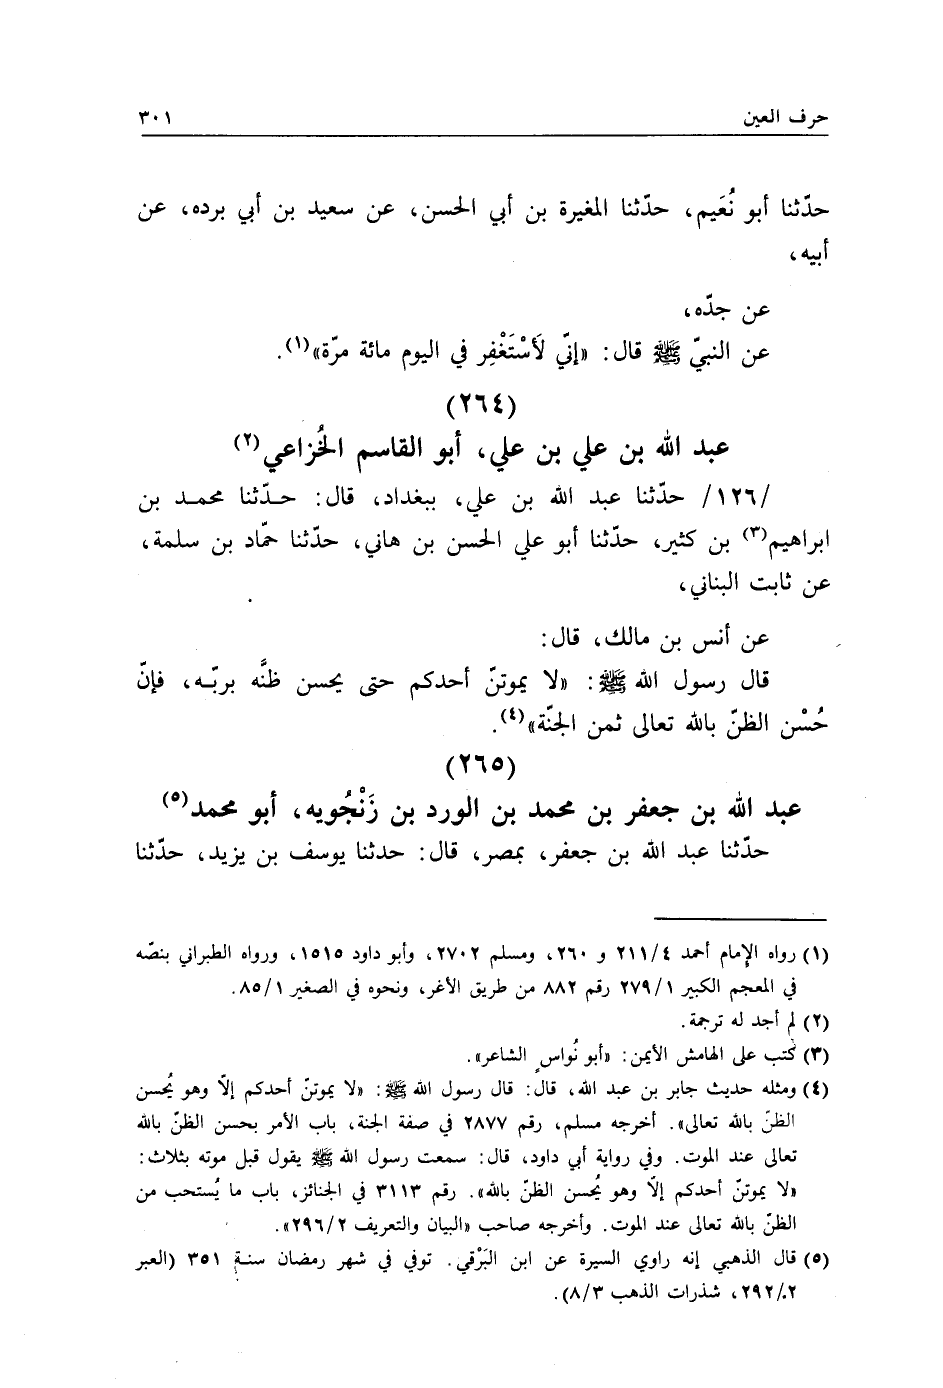 حرف العين ٣٠١
حدّثنا أبو نُعَيم، حدّثنا المغيرة بن أبي الحسن، عن سعيد بن أبي برده، عن
أبيه،
عن جدّه،
عن النبيّ ﷺ قال: «إنّي لَأسْتَغْفِر في اليوم مائة مرّة»(١).
(٢٦٤)
عبد الله بن علي بن علي، أبو القاسم الخُزاعي(٢)
/١٢٦/ حدّثنا عبد الله بن علي، ببغداد، قال: حـدّثنا محمـد بن
ابراهيم(٣) بن كثير، حدّثنا أبو علي الحسن بن هاني، حدّثنا حمّاد بن سلمة،
عن ثابت البناني،
عن أنس بن مالك، قال:
قال رسول الله ﷺ: «لا يموتنّ أحدكم حتى يحسن ظنَّه بربّـه، فإنّ
حُسْن الظنّ بالله تعالى ثمن الجنّة»(٤).
(٢٦٥)
عبد الله بن جعفر بن محمد بن الورد بن زَنْجُويه، أبو محمد(٥)
حدّثنا عبد الله بن جعفر، بمصر، قال: حدثنا يوسف بن يزيد، حدّثنا
(١) رواه الإمام أحمد ٢١١/٤ و ٢٦٠، ومسلم ٢٧٠٢، وأبو داود ١٥١٥، ورواه الطبراني بنصّه
في المعجم الكبير ٢٧٩/١ رقم ٨٨٢ من طريق الأغر، ونحوه في الصغير ٨٥/١.
(٢) لم أجد له ترجمة.
(٣) كُتب على الهامش الأيمن: «أبو نُواسٍ الشاعر».
(٤) ومثله حديث جابر بن عبد الله، قال: قال رسول الله ﷺ: «لا يموتنّ أحدكم إلّا وهو يُحسن
الظنّ بالله تعالى». أخرجه مسلم، رقم ٢٨٧٧ في صفة الجنة، باب الأمر بحسن الظنّ بالله
تعالى عند الموت. وفي رواية أبي داود، قال: سمعت رسول الله ﷺ يقول قبل موته بثلاث:
«لا يموتنّ أحدكم إلّا وهو يُحسن الظنّ بالله». رقم ٣١١٣ في الجنائز، باب ما يُستحب من
الظنّ بالله تعالى عند الموت. وأخرجه صاحب «البيان والتعريف ٢٩٦/٢».
(٥) قال الذهبي إنه راوي السيرة عن ابن البَرْقي. توفي في شهر رمضان سنـة ٣٥١ (العبر
٢٩٢/٢، شذرات الذهب ٨/٣).